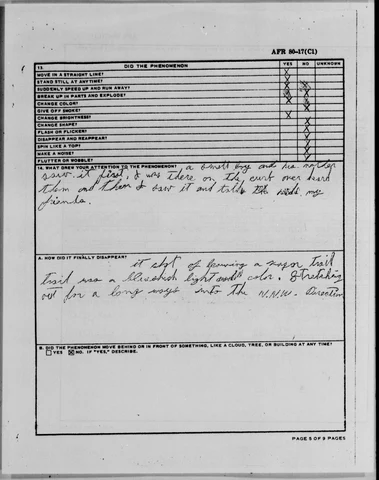 AFR 80-17(C1)
13. DID THE PHENOMENON YES NO UNKNOWN
MOVE IN A STRAIGHT LINE? X
STAND STILL AT ANYTIME? X
SUDDENLY SPEED UP AND RUN AWAY?
BREAK UP IN PARTS AND EXPLODE?
CHANGE COLOR?
GIVE OFF SMOKE?
CHANGE BRIGHTNESS?
CHANGE SHAPE?
FLASH OR FLICKER?
DISAPPEAR AND REAPPEAR?
SPIN LIKE A TOP?
MAKE A NOISE?
FLUTTER OR WOBBLE?
14. WHAT DREW YOUR ATTENTION TO THE PHENOMENON? a small boy and his mother
saw it first, I was there on the curb over heard
them and then I saw it and told the my
friends.
A. HOW DID IT FINALLY DISAPPEAR? it of leaving a vapor trail
trail was a blueish light color. Stretching
out for a long ways into the N.N.W. Direction
B. DID THE PHENOMENON MOVE BEHIND OR IN FRONT OF SOMETHING, LIKE A CLOUD, TREE, OR BUILDING AT ANY TIME?
YES X NO. IF "YES," DESCRIBE.
PAGE 5 OF 9 PAGES